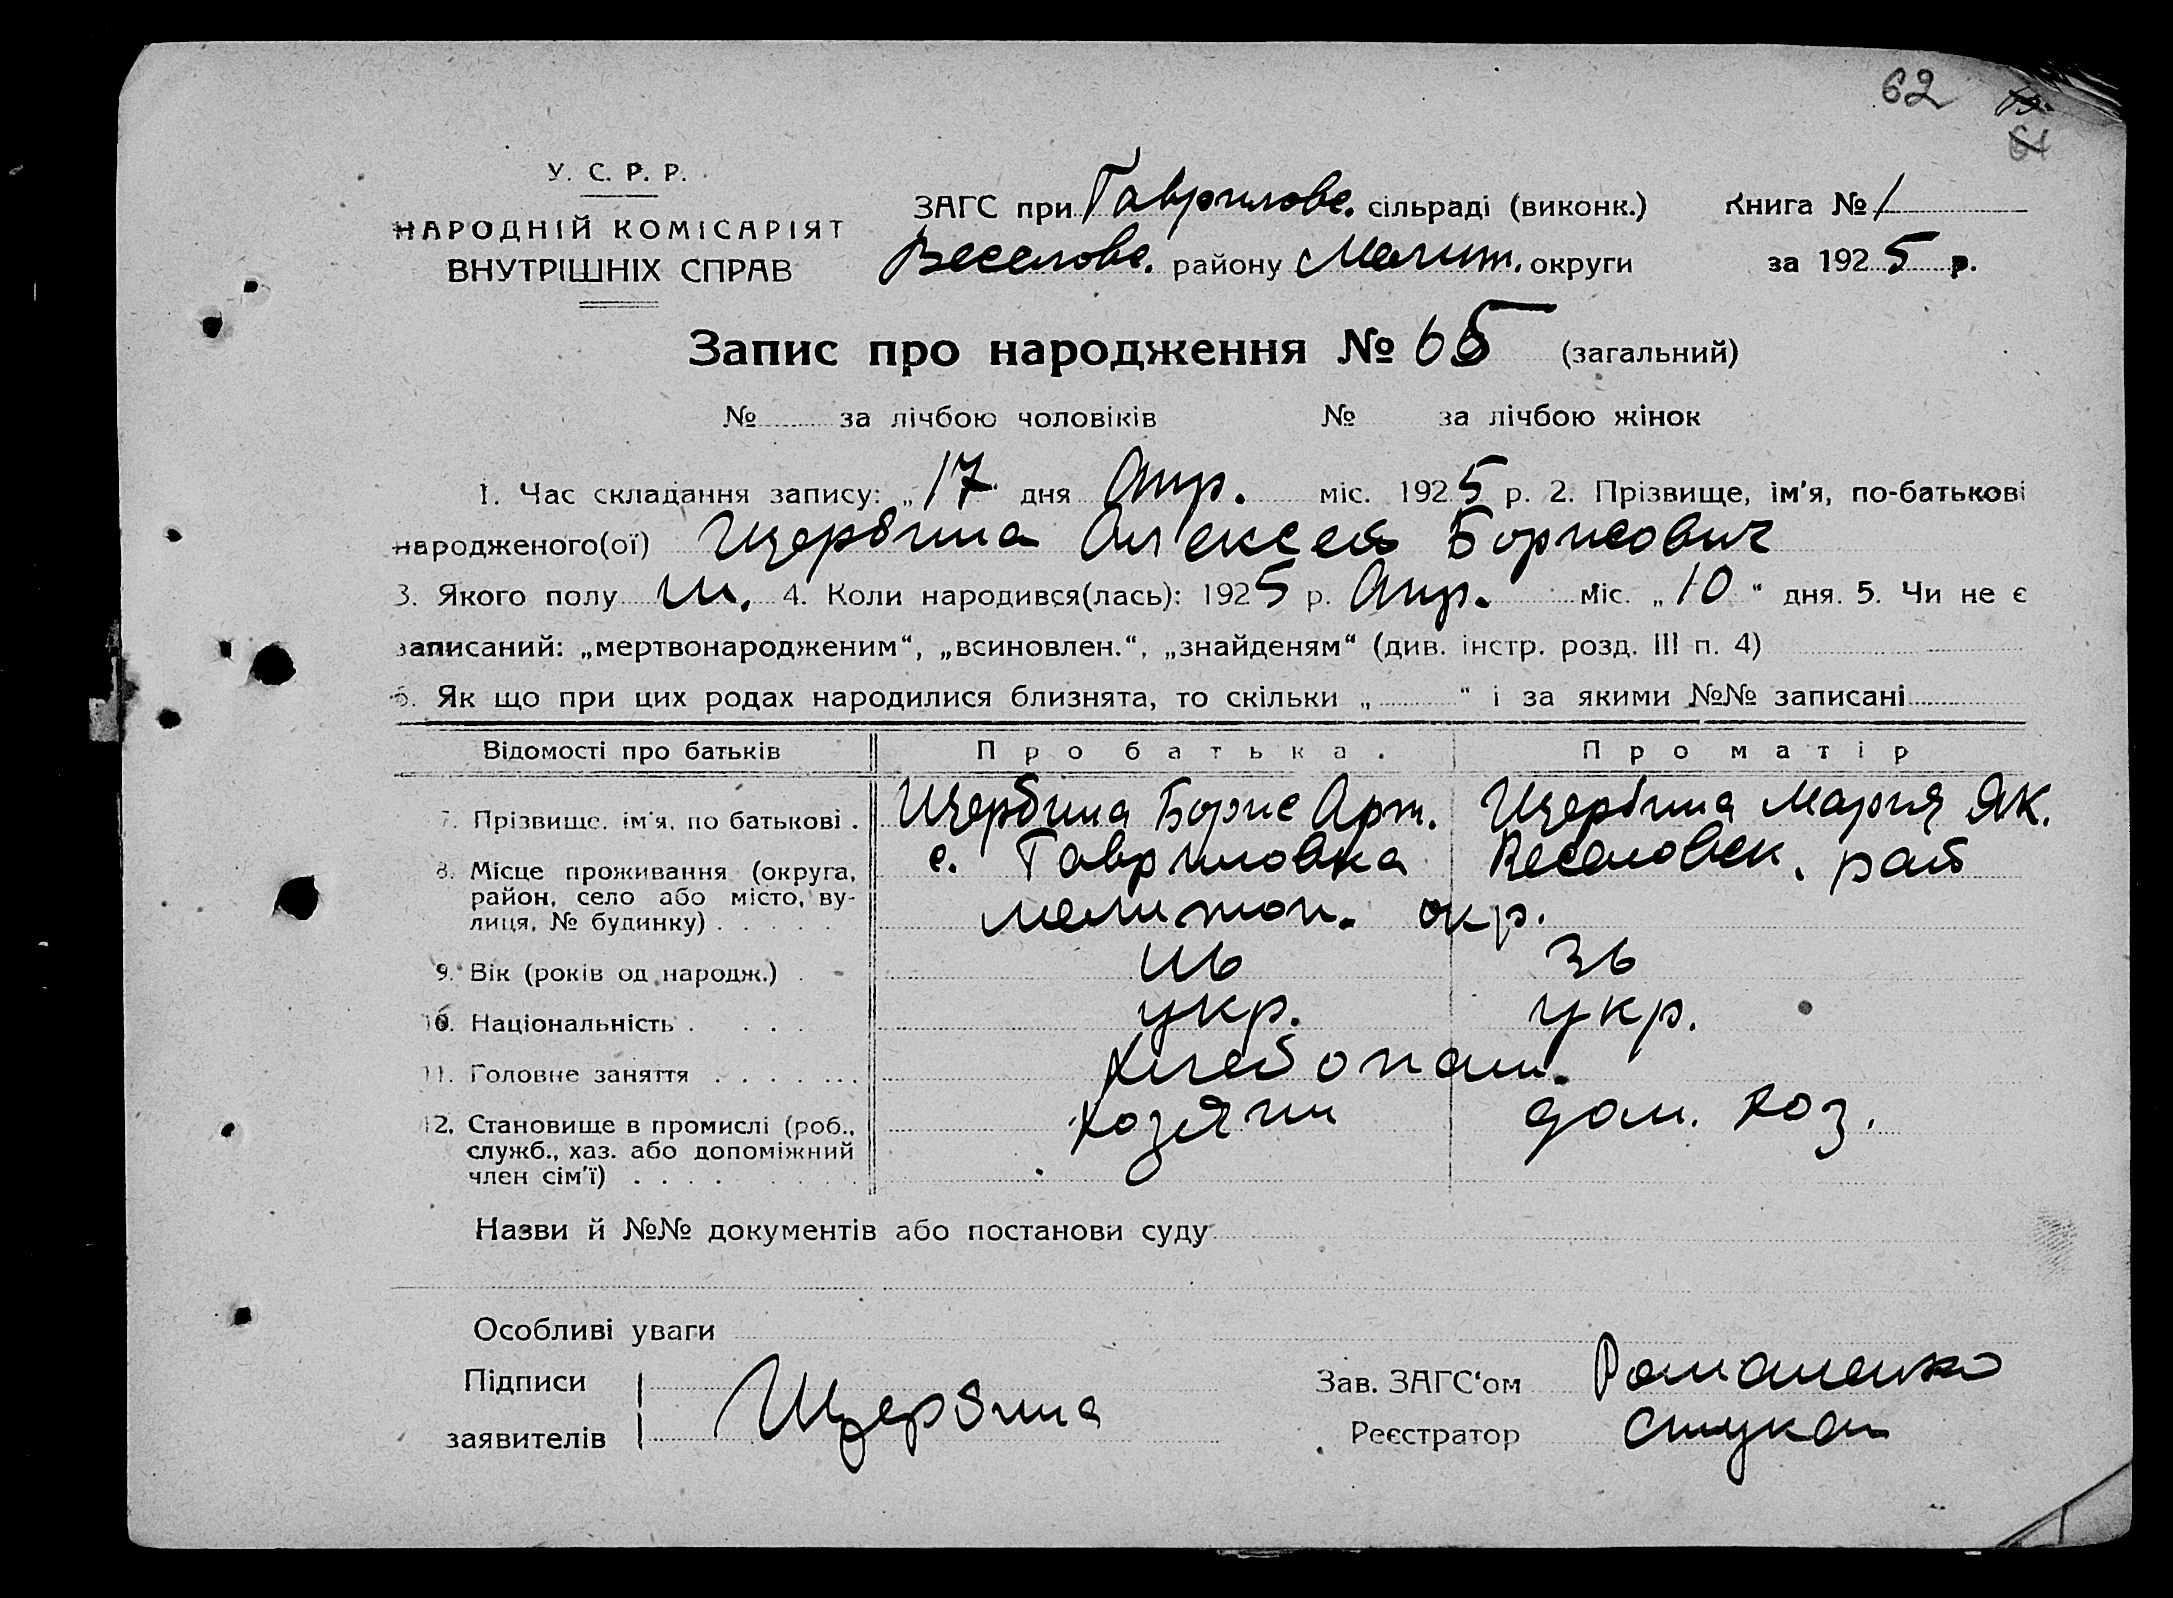 62
61
У. С. Р. Р.
НАРОДНІЙ КОМІСАРІЯТ
ВНУТРІШНІХ СПРАВ
ЗАГС при Гаврилове. сільраді (виконк.) Книга № 1
Веселовс. району Мелит. округи за 1925 р.
Запис про народження № 65 (загальний)
№ за лічбою чоловіків № за лічбою жінок
1. Час складання запису: „17“ дня Апр. міс. 1925 р. 2. Прізвище, ім'я, по-батькові
народженого(ої) Щербина Алексей Борисович
3. Якого полу м. 4. Коли народився(лась): 1925 р. Апр. міс. „10“ дня. 5. Чи не є
записаний: „мертвонародженим“, „всиновлен.“, „знайденям“ (див. інстр. розд. III п. 4)
6. Як що при цих родах народилися близнята, то скільки „ “ і за якими №№ записані
Відомості про батьків Про батька. Про матір
7. Прізвище, ім'я, по батькові . Щербина Борис Арт. Щербина Мария Як.
8. Місце проживання (округа, с. Гавриловка Веселовск. рай
район, село або місто, ву-
лиця, № будинку) . . . . . мелитоп. окр.
9. Вік (років од народж.) . 36
10. Національність . . . . укр. укр.
11. Головне заняття . . . . . . . Хлебопаш.
12. Становище в промислі (роб., хозяин дом. хоз.
служб., хаз. або допоміжний
член сім'ї) . . . .
Назви й №№ документів або постанови суду
Особливі уваги
Підписи Зав. ЗАГС'ом Романенко
заявителів Щербина Реєстратор Стукан